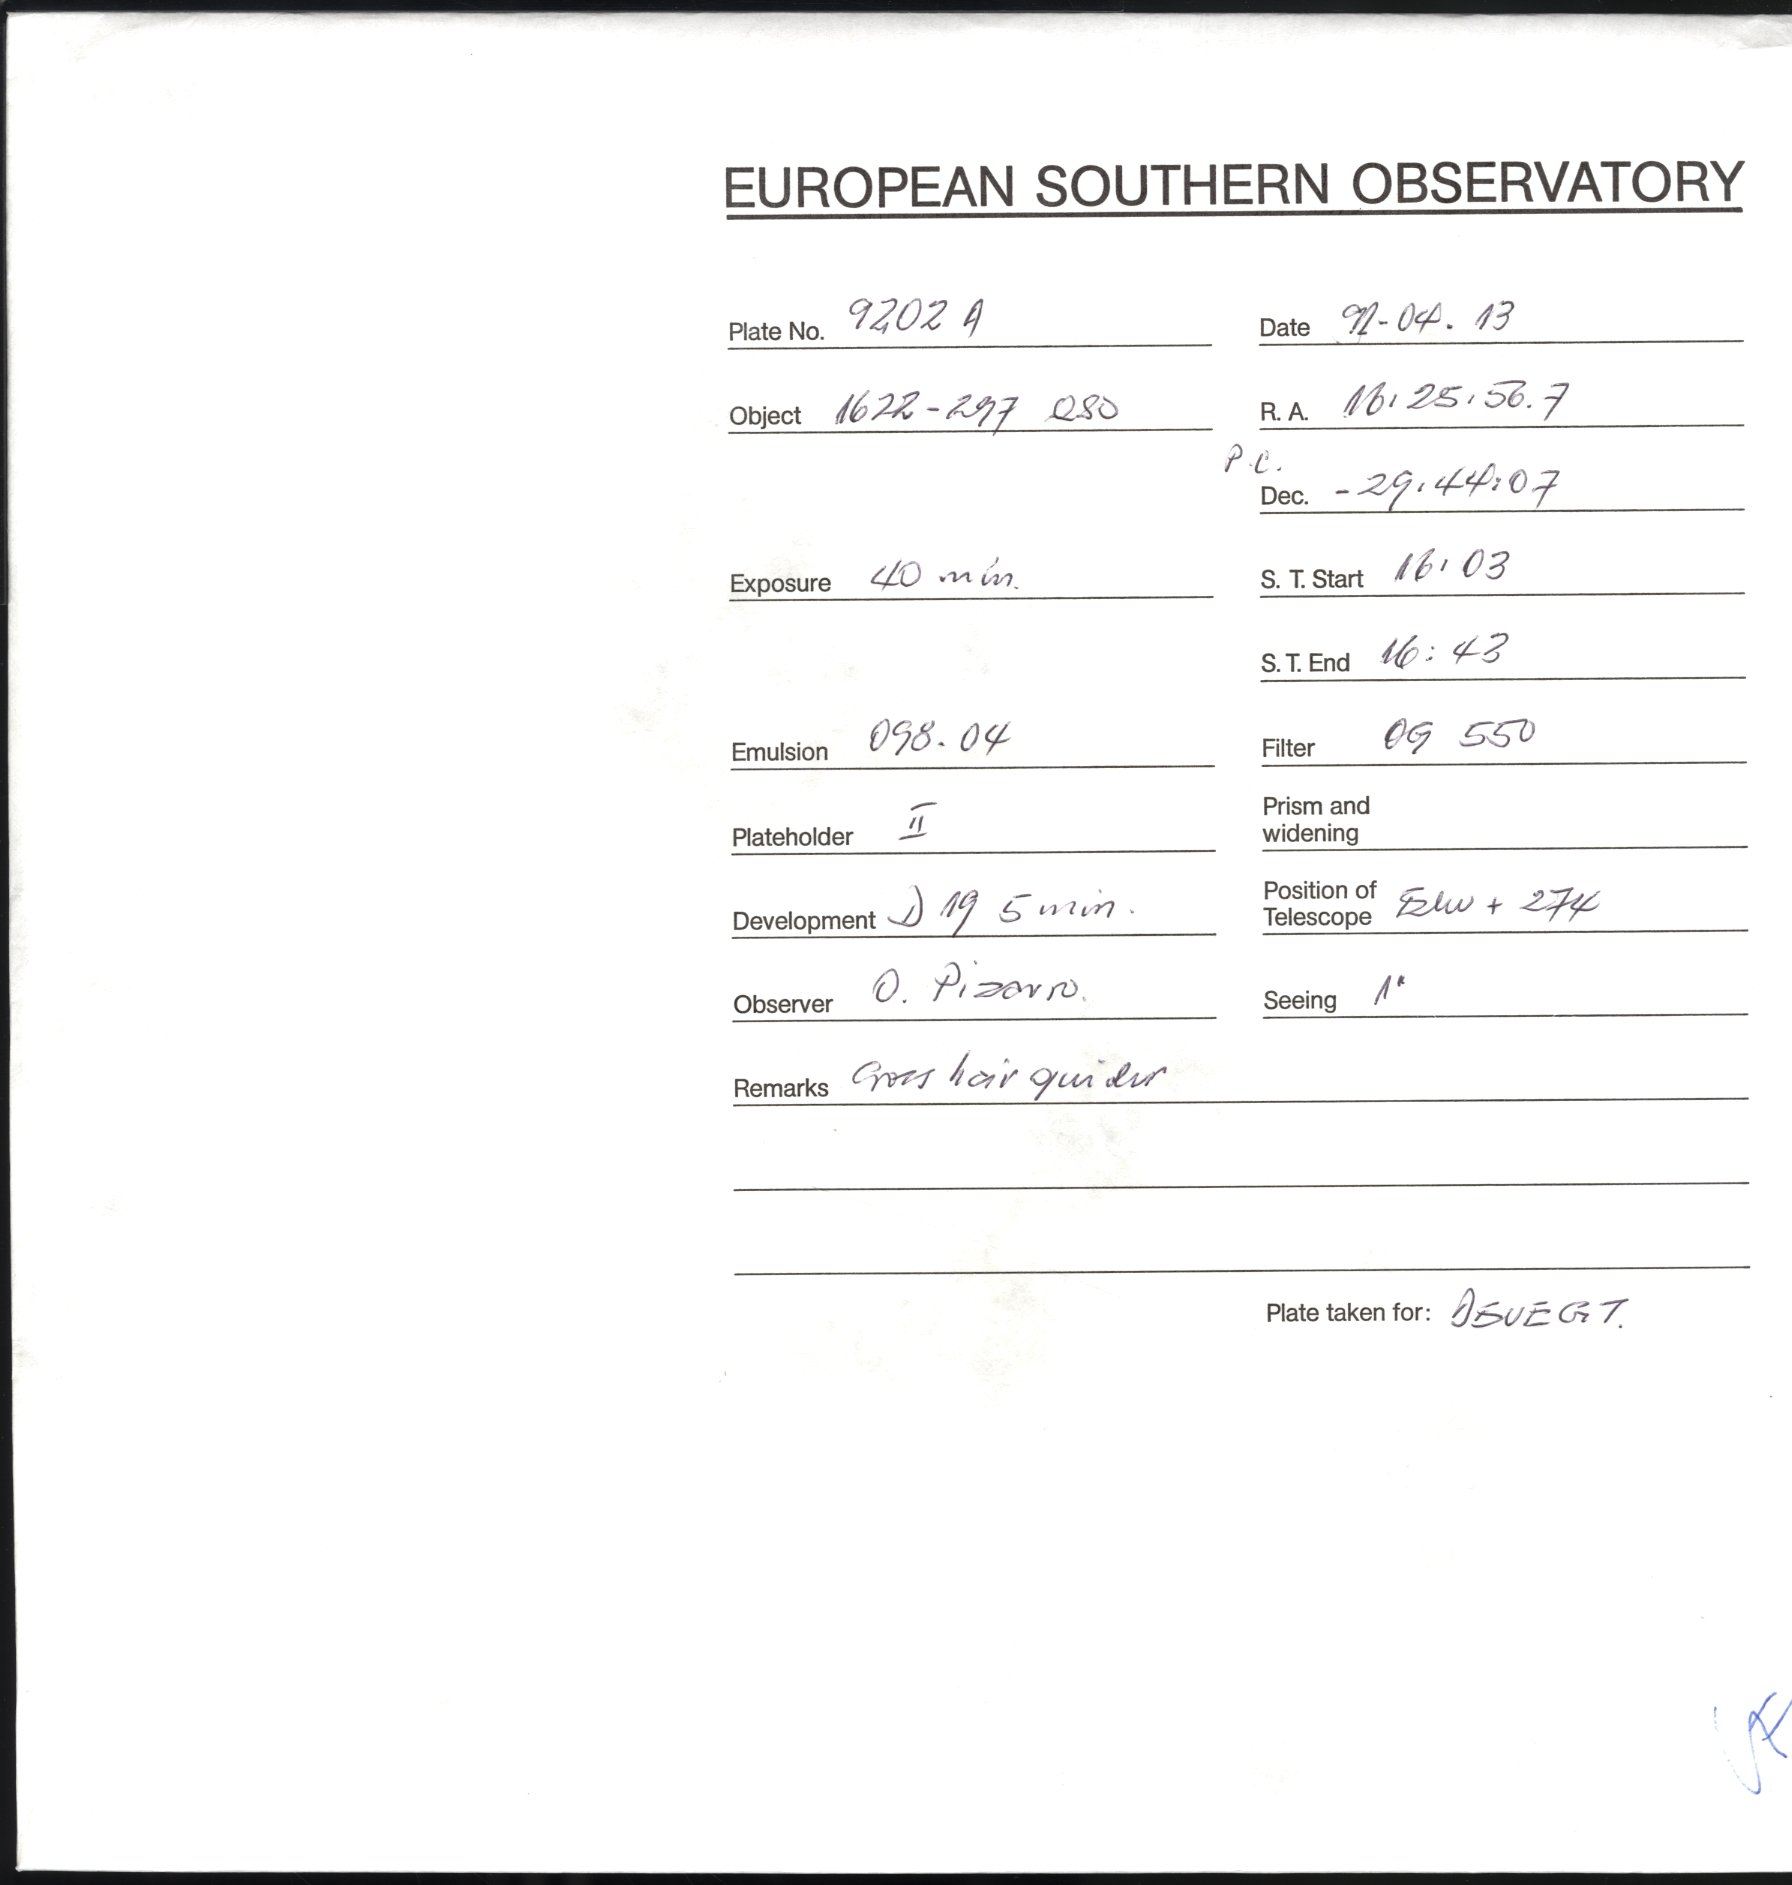 EUROPEAN SOUTHERN OBSERVATORY
Plate No. 9202 A
Date 91-04. 13
Object 1622-297 QSO
R. A. 16:25:56.7
P.C.
Dec. -29:44:07
Exposure 40 min.
S. T. Start 16:03
S. T. End 16:43
Emulsion 098.04
Filter OG 550
Plateholder II
Prism and
widening
Development D 19 5 min.
Position of
Telescope + 274
Observer O. Pizarro.
Seeing 1"
Remarks Cross hair guider
Plate taken for: